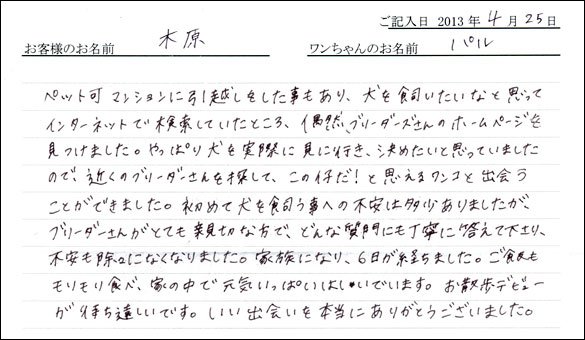 ご記入日 2013 年 4 月 25 日
お客様のお名前 木原 ワンちゃんのお名前 パル
ペット可マンションに引越しをした事もあり、犬を飼いたいなと思って
インターネットで検索していたところ、偶然、ブリーダーズさんのホームページを
見つけました。やっぱり犬を実際に見に行き、決めたいと思っていました
ので、近くのブリーダーさんを探して、この仔だ!と思えるワンコと出会う
ことができました。初めて犬を飼う事への不安は多少ありましたが、
ブリーダーさんがとても親切な方で、どんな質問にも丁寧に答えて下さり、
不安も除々になくなりました。家族になり、6日が経ちました。ご飯も
もりもり食べ、家の中で元気いっぱいはしゃいでいます。お散歩デビュー
が待ち遠しいです。いい出会いを本当にありがとうございました。